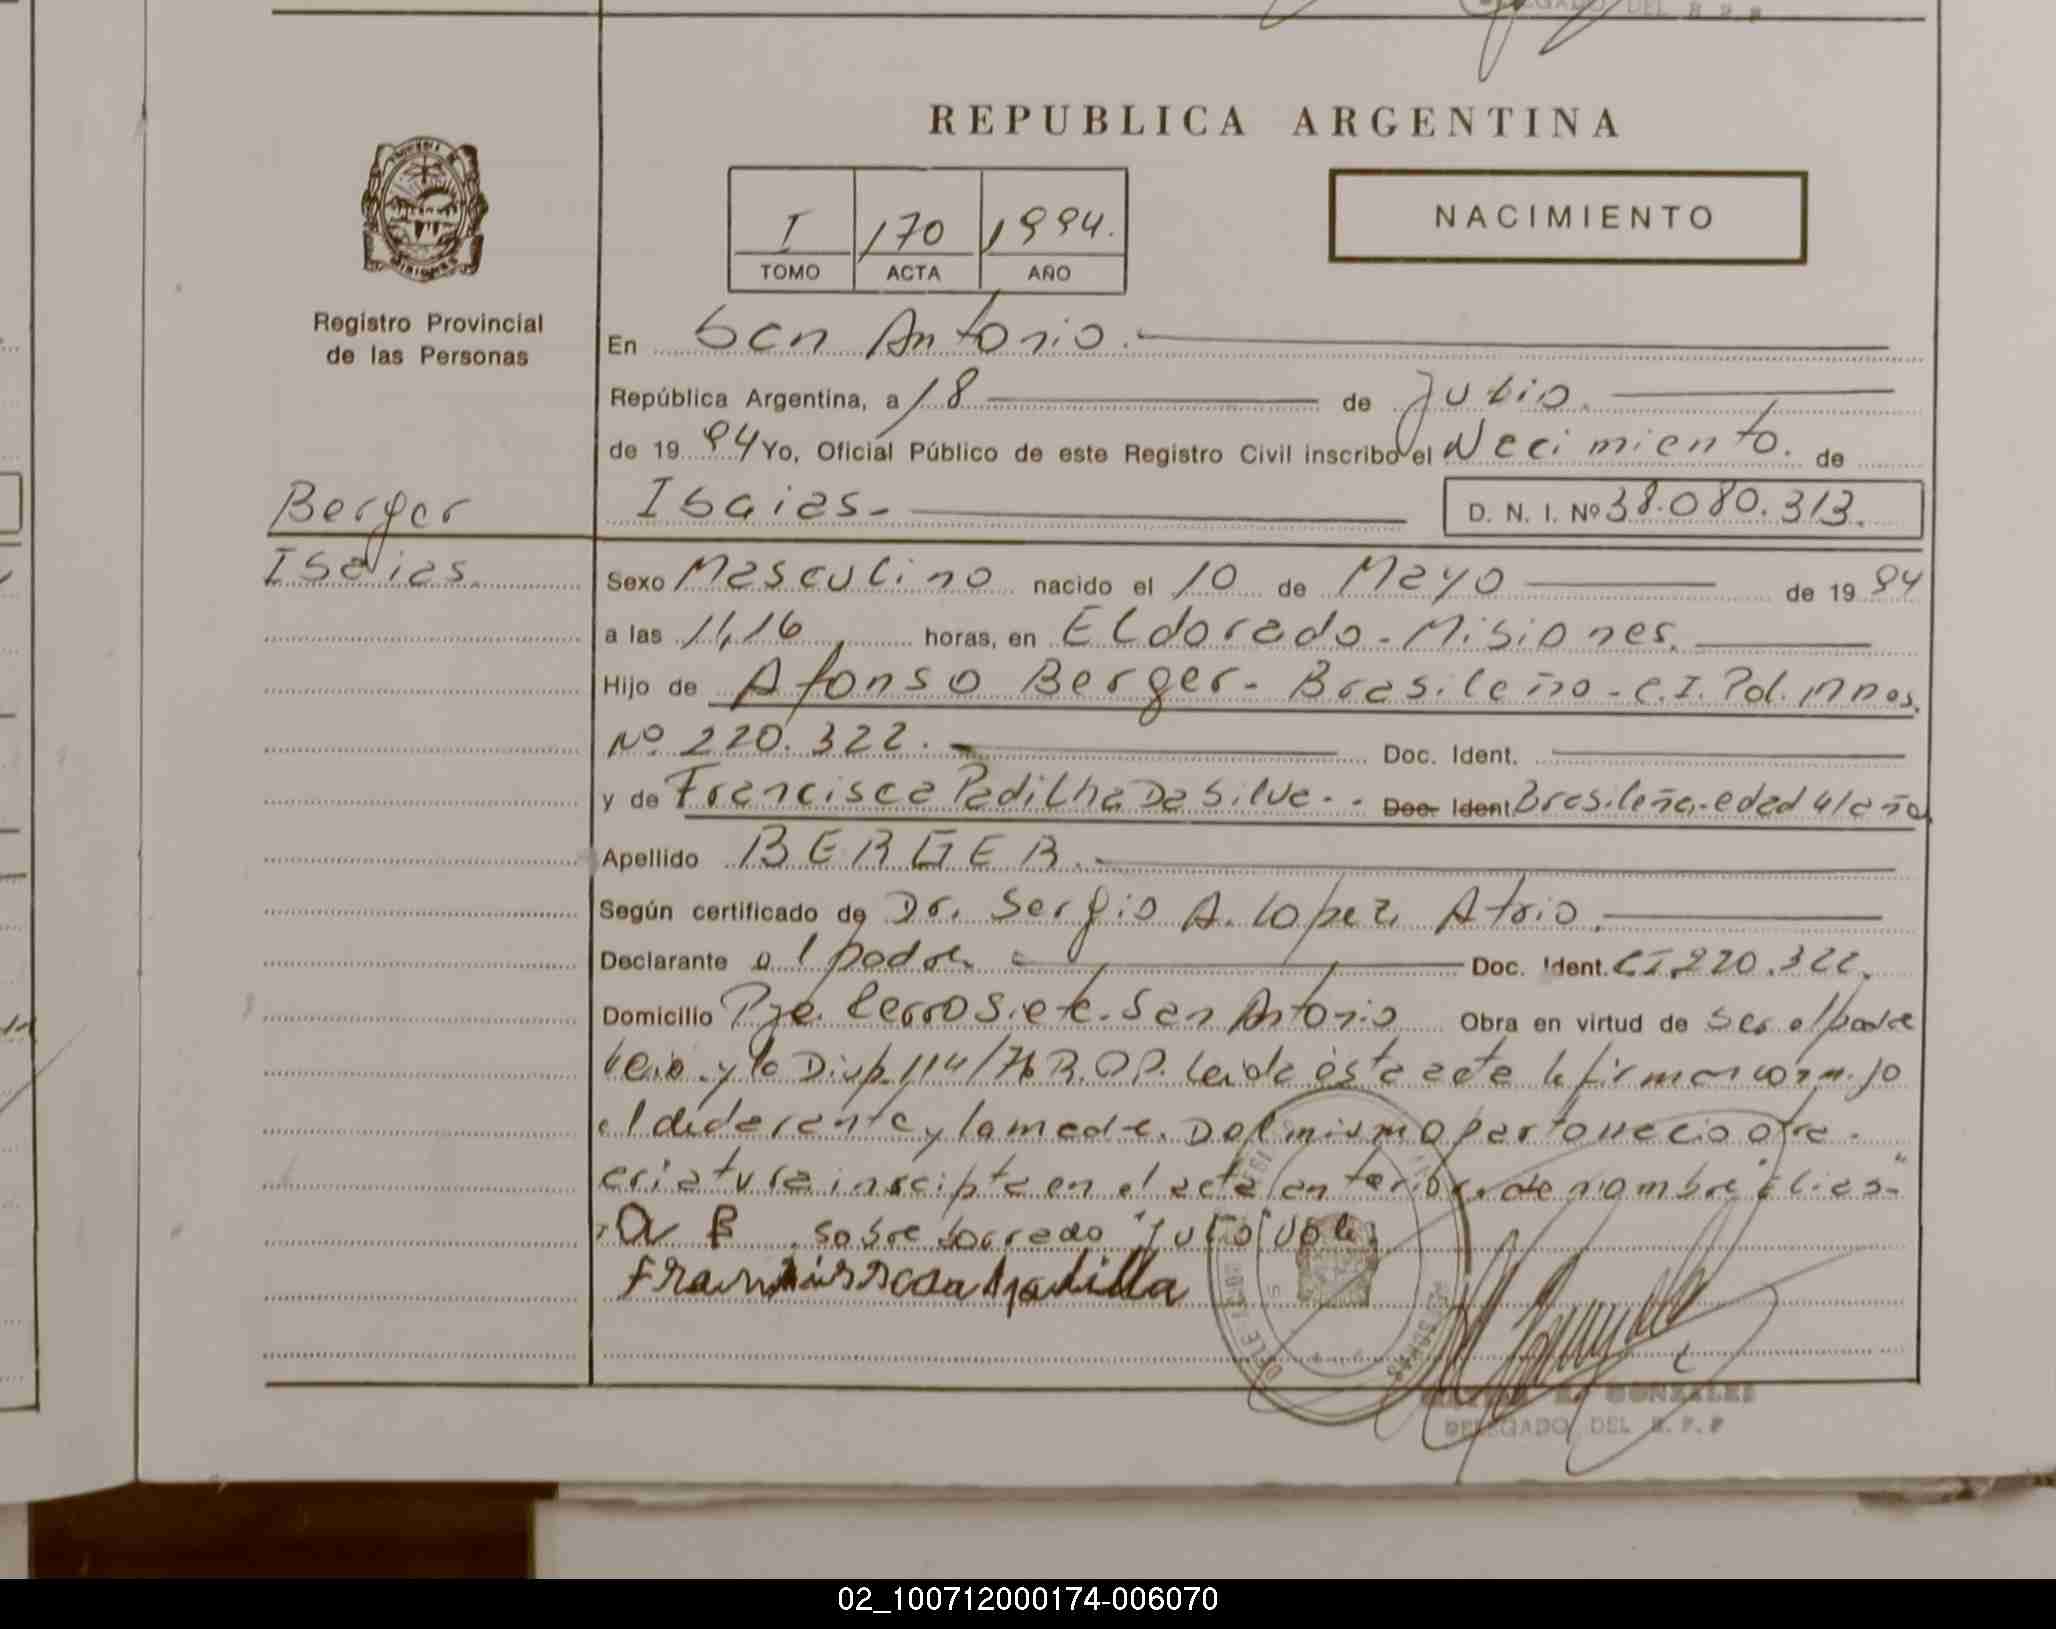 DELEGADO DEL R.P.P
REPUBLICA ARGENTINA
I 170 1994.
TOMO ACTA AÑO
NACIMIENTO
Registro Provincial
de las Personas
En San Antonio.
República Argentina, a 18 de Julio.
de 1994 Yo, Oficial Público de este Registro Civil inscribo el Nacimiento. de
Berger
Isaias.
Isaias-
D. N. I. Nº 38.080.313.
Sexo Masculino nacido el 10 de Mayo de 1994
a las 11,16 horas, en ELdorado-Misiones.
Hijo de Afonso Berger- Brasileño-C.I. Pol. Mnes.
Nº 220.322. Doc. Ident.
y de Francisca Padilha Da Silva-- Doc. Ident. Brasileña-edad 41 año
Apellido BERGER.
Según certificado de Dr. Sergio A. Lopez Atrio.
Declarante el padre Doc. Ident. CI.220.322.
Domicilio Pje. Cerro Siete. San Antonio Obra en virtud de Ser el padre
y la Disp. 114/76 R.P.P. Leida esta acta la firman conmigo
el declarante y la madre. Del mismo parto nacio otra
criatura inscripta en el acta anterior, de nombre "Elias"
sobre borrado "Julio" vale.
A B
Padilla
GONZALEZ
DELEGADO DEL R.P.P
02_100712000174-006070